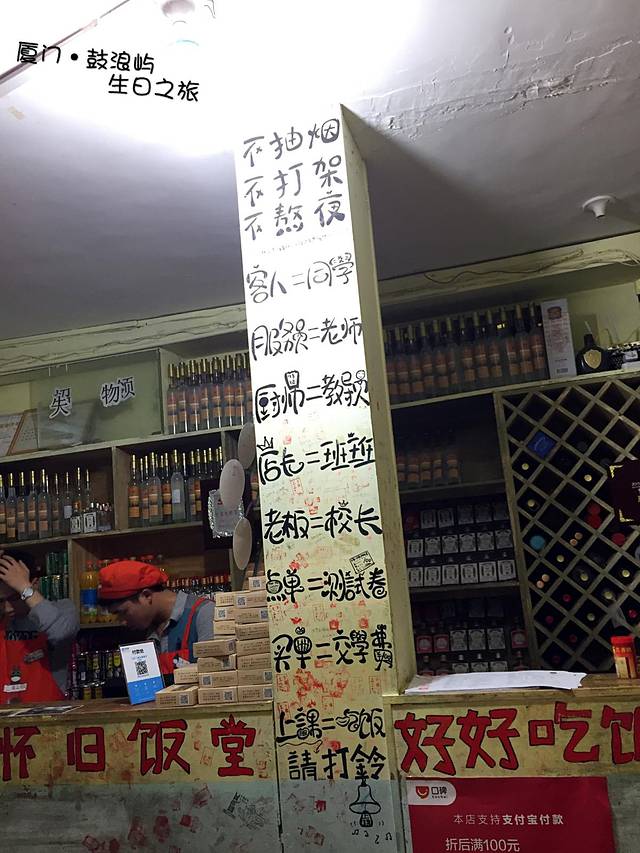 厦门·鼓浪屿
生日之旅
不抽烟
不打架
不熬夜
客人=同學
服務员=老师
厨师=教导員
店长=班班
老板=校长
點單=测試卷
买單=交學費
上課=吃饭
請打鈴
买 物须
付款处
怀旧饭堂
好好吃饭
口碑
koubei
本店支持支付宝付款
折后满100元